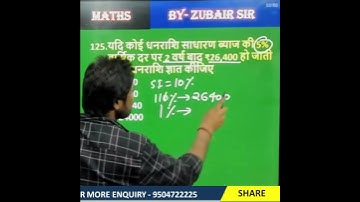 MATHS BY- ZUBAIR SIR
125.यदि कोई धनराशि साधारण ब्याज की 5%
दर पर 2 वर्ष बाद ₹26,400 हो जाती
धनराशि ज्ञात कीजिए
SI = 10%
110% → 26400
1% →
R MORE ENQUIRY - 9504722225 SHARE